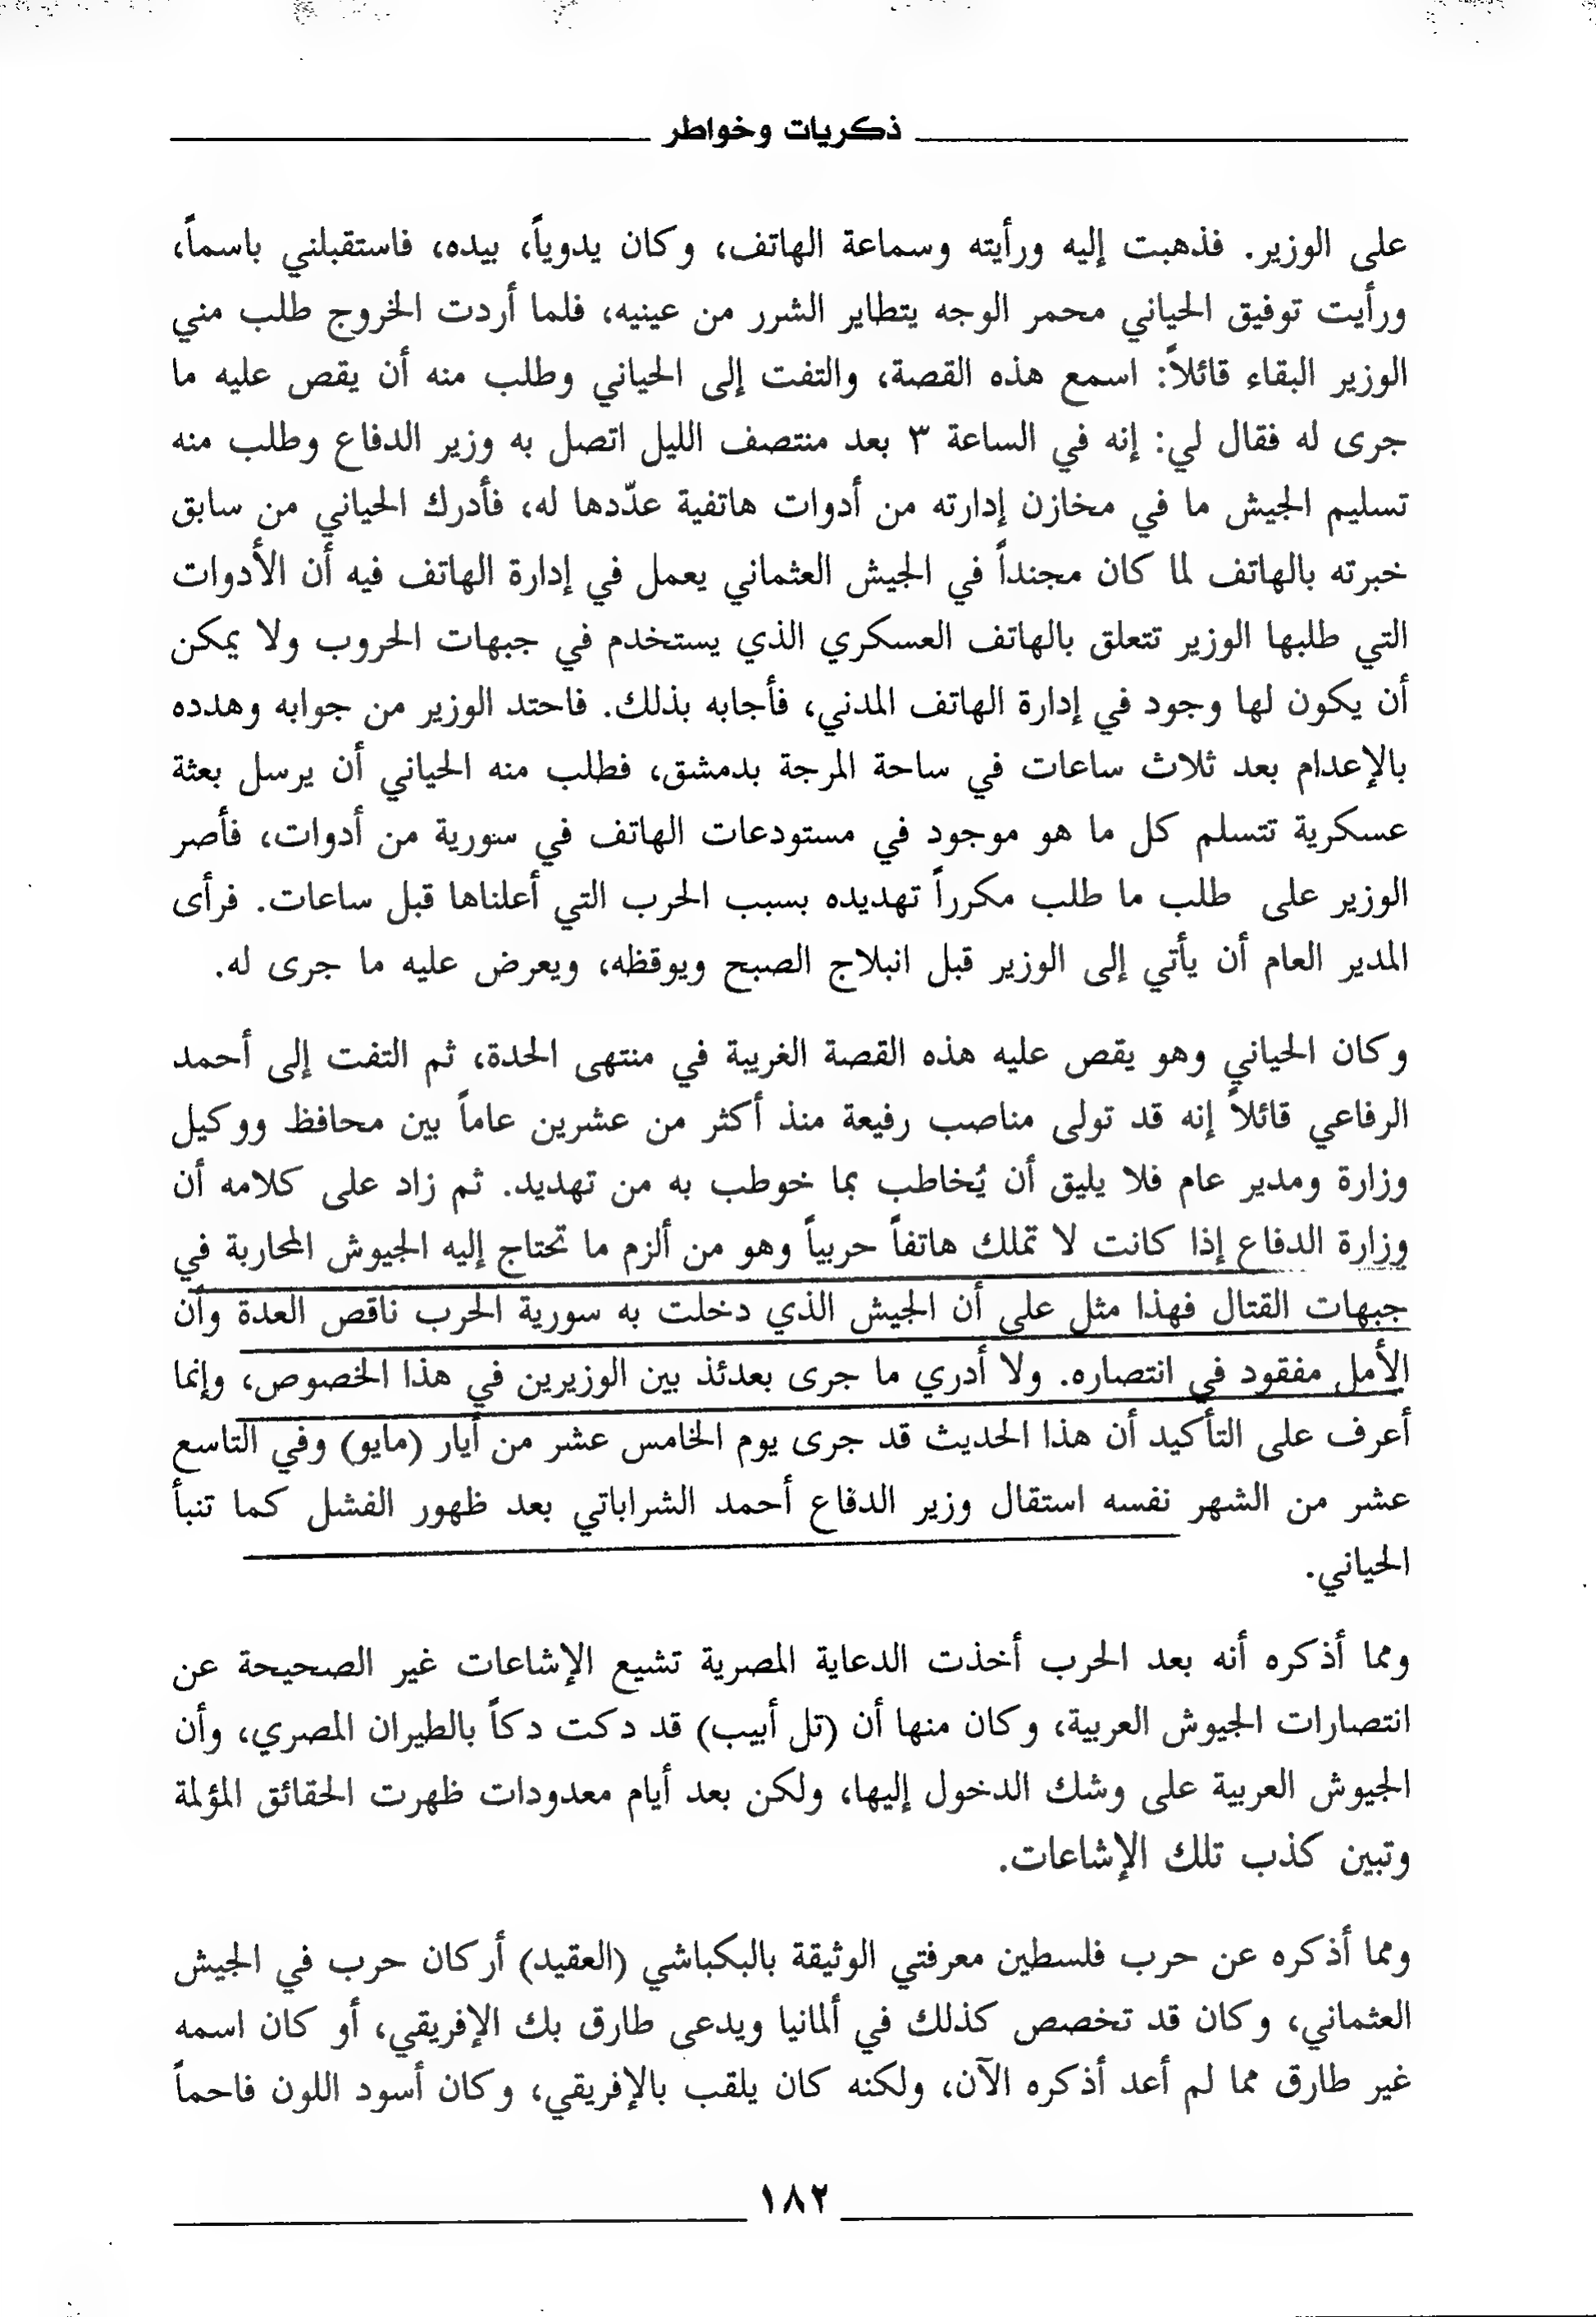 ذكريات وخواطر
على الوزير. فذهبت إليه ورأيته وسماعة الهاتف، وكان يدوياً، بيده، فاستقبلني باسماً،
ورأيت توفيق الحياني محمر الوجه يتطاير الشرر من عينيه، فلما أردت الخروج طلب مني
الوزير البقاء قائلاً: اسمع هذه القصة، والتفت إلى الحياني وطلب منه أن يقص عليه ما
جرى له فقال لي: إنه في الساعة ٣ بعد منتصف الليل اتصل به وزير الدفاع وطلب منه
تسليم الجيش ما في مخازن إدارته من أدوات هاتفية عدّدها له، فأدرك الحياني من سابق
خبرته بالهاتف لما كان مجنداً في الجيش العثماني يعمل في إدارة الهاتف فيه أن الأدوات
التي طلبها الوزير تتعلق بالهاتف العسكري الذي يستخدم في جبهات الحروب ولا يمكن
أن يكون لها وجود في إدارة الهاتف المدني، فأجابه بذلك. فاحتد الوزير من جوابه وهدده
بالإعدام بعد ثلاث ساعات في ساحة المرجة بدمشق، فطلب منه الحياني أن يرسل بعثة
عسكرية تتسلم كل ما هو موجود في مستودعات الهاتف في سورية من أدوات، فأصر
الوزير على طلب ما طلب مكرراً تهديده بسبب الحرب التي أعلناها قبل ساعات. فرأى
المدير العام أن يأتي إلى الوزير قبل انبلاج الصبح ويوقظه، ويعرض عليه ما جرى له.
وكان الحياني وهو يقص عليه هذه القصة الغريبة في منتهى الحدة، ثم التفت إلى أحمد
الرفاعي قائلاً إنه قد تولى مناصب رفيعة منذ أكثر من عشرين عاماً بين محافظ ووكيل
وزارة ومدير عام فلا يليق أن يُخاطب بما خوطب به من تهديد. ثم زاد على كلامه أن
وزارة الدفاع إذا كانت لا تملك هاتفاً حربياً وهو من ألزم ما تحتاج إليه الجيوش المحاربة في
جبهات القتال فهذا مثل على أن الجيش الذي دخلت به سورية الحرب ناقص العدة وأن
الأمل مفقود في انتصاره. ولا أدري ما جرى بعدئذ بين الوزيرين في هذا الخصوص، وإنما
أعرف على التأكيد أن هذا الحديث قد جرى يوم الخامس عشر من أيار (مايو) وفي التاسع
عشر من الشهر نفسه استقال وزير الدفاع أحمد الشراباتي بعد ظهور الفشل كما تنبأ
الحياني.
ومما أذكره أنه بعد الحرب أخذت الدعاية المصرية تشيع الإشاعات غير الصحيحة عن
انتصارات الجيوش العربية، وكان منها أن (تل أبيب) قد دكت دكاً بالطيران المصري، وأن
الجيوش العربية على وشك الدخول إليها، ولكن بعد أيام معدودات ظهرت الحقائق المؤلمة
وتبين كذب تلك الإشاعات.
ومما أذكره عن حرب فلسطين معرفتي الوثيقة بالبكباشي (العقيد) أركان حرب في الجيش
العثماني، وكان قد تخصص كذلك في ألمانيا ويدعى طارق بك الإفريقي، أو كان اسمه
غير طارق مما لم أعد أذكره الآن، ولكنه كان يلقب بالإفريقي، وكان أسود اللون فاحماً
١٨٢